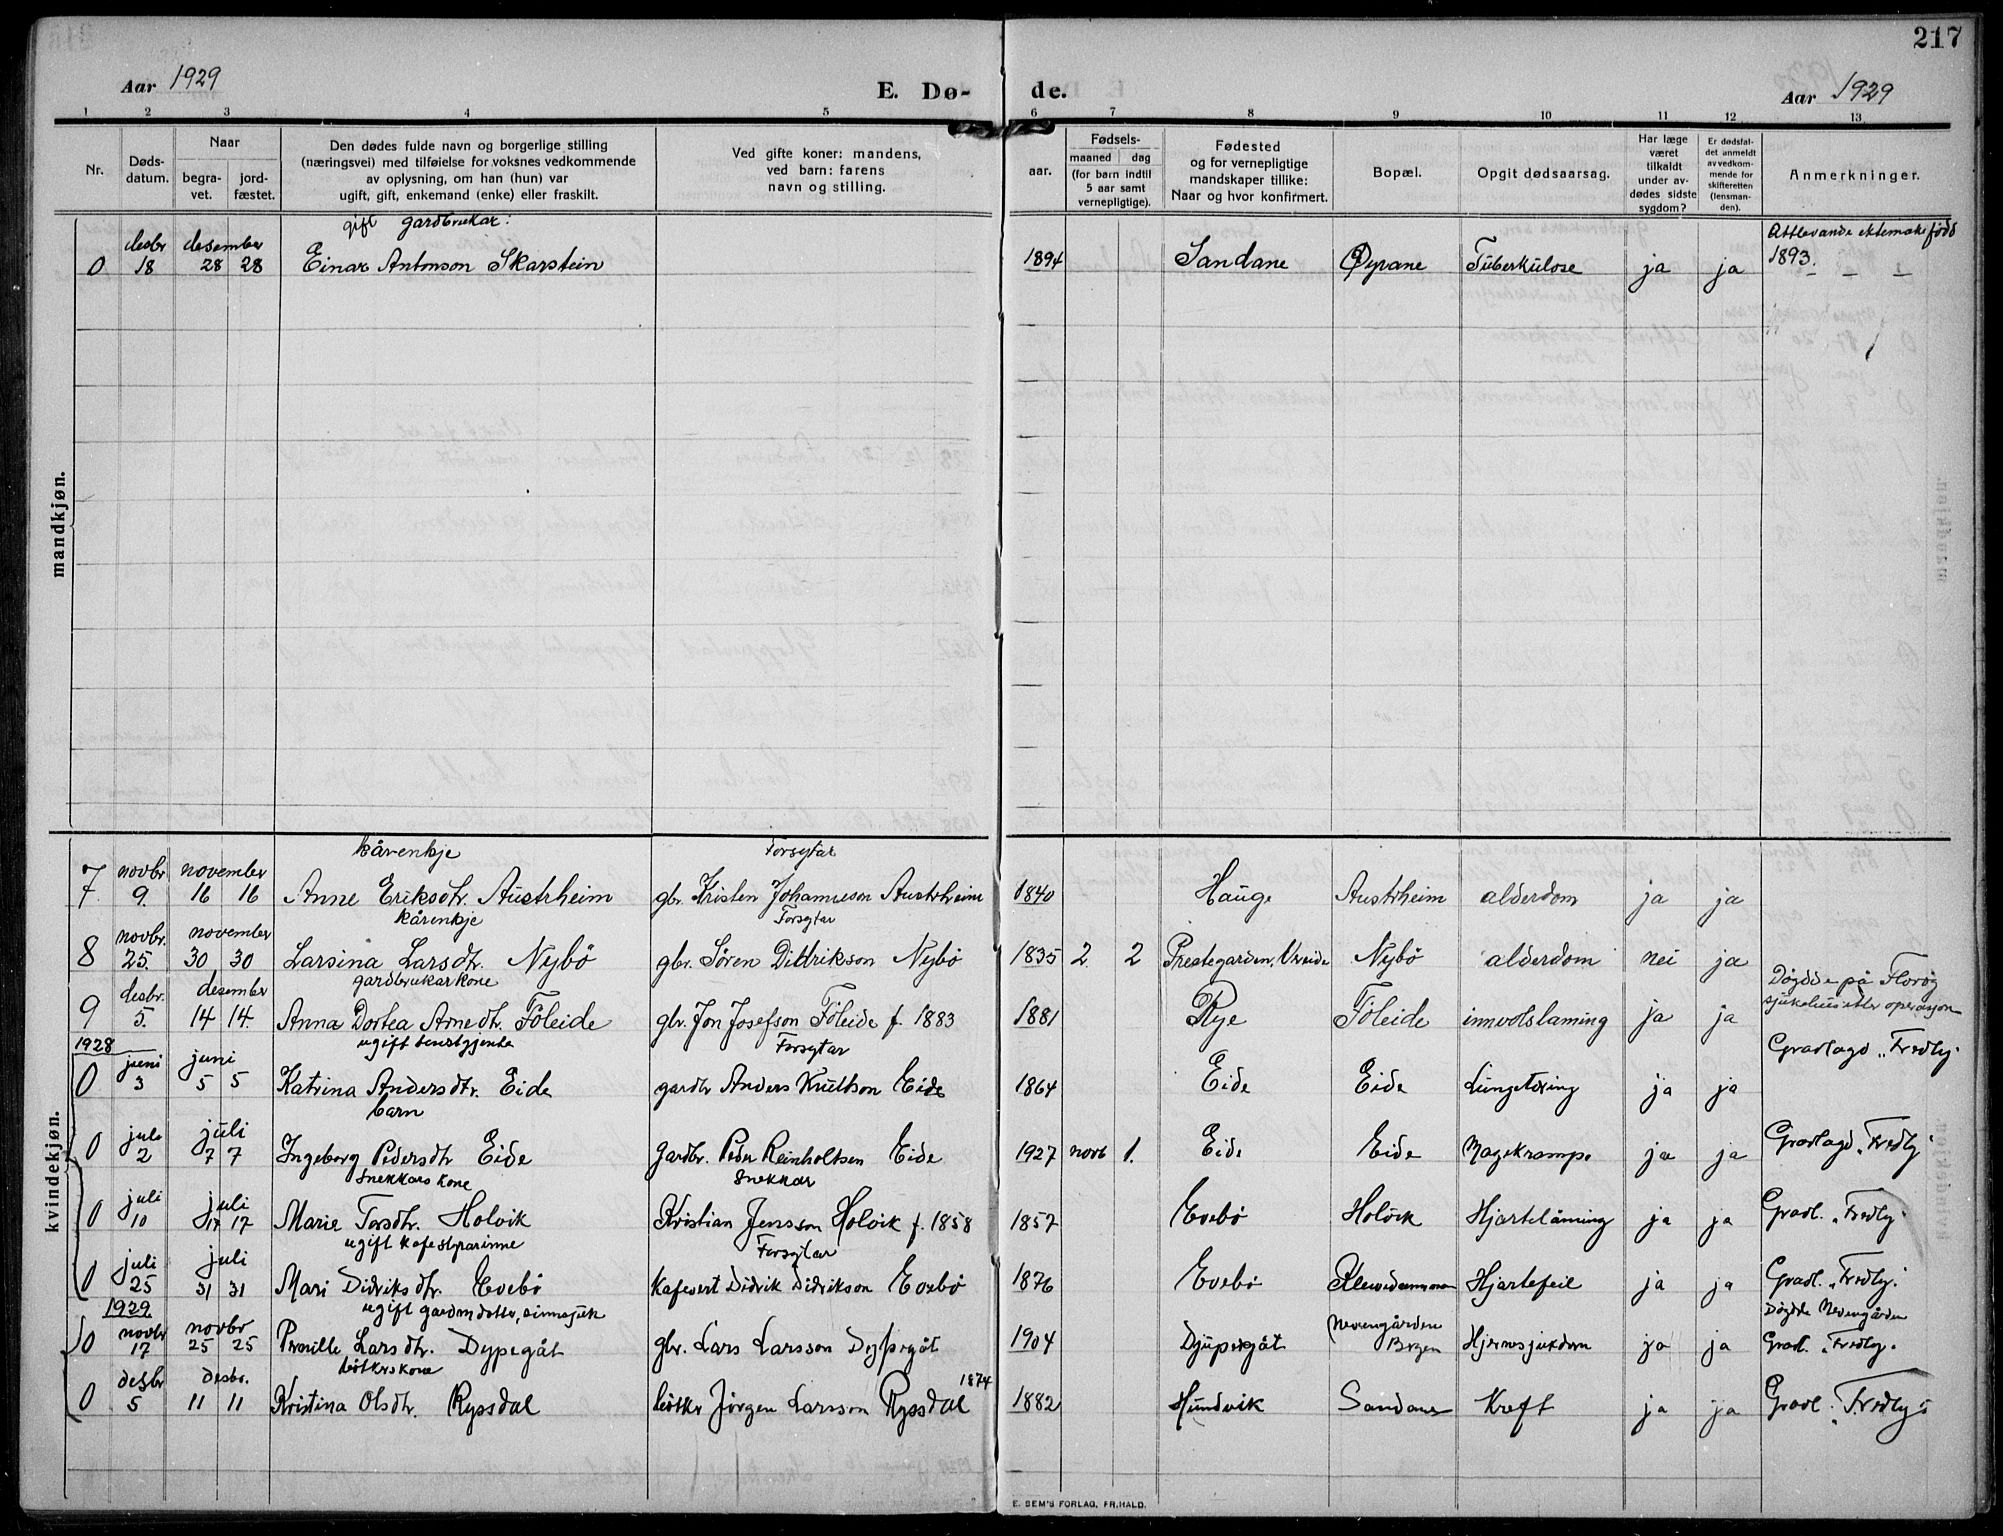 217
Aar 1929
E. Dø- de.
Aar 1929
1 2 3 4 5 6 7 8 9 10 11 12 13
Nr.
Døds-
datum.
Naar
begra-
vet.
jord-
fæstet.
Den dødes fulde navn og borgerlige stilling
(næringsvei) med tilføielse for voksnes vedkommende
av oplysning, om han (hun) var
ugift, gift, enkemand (enke) eller fraskilt.
Ved gifte koner: mandens,
ved barn: farens
navn og stilling.
aar.
Fødsels-
maaned dag
(for barn indtil
5 aar samt
vernepligtige).
Fødested
og for vernepligtige
mandskaper tillike:
Naar og hvor konfirmert.
Bopæl.
Opgit dødsaarsag.
Har læge
været
tilkaldt
under av-
dødes sidste
sygdom?
Er dødsfal-
det anmeldt
av vedkom-
mende for
skifteretten
(lensman-
den).
Anmerkninger.
mandkjøn.
gift gardbrukar:
desbr desember Attlevande ektemake født
0 18 28 28 Einar Antonson Skarstein 1894 Sandane Øyrane Tuberkulose ja ja 1893.
kvindekjøn.
kårenkje Forsytar
novbr november
7 9. 16 16 Anne Eriksdtr. Austrheim gbr. Kristen Johanneson Austrheim 1840 Hauge Austrheim alderdom ja ja
kårenkje Forsytar
novbr. november
8 25. 30 30 Larsina Larsdtr. Nybö gbr. Sören Didrikson Nybö 1835 2 2 Prestegarden, Vreide Nybö alderdom nei ja
gardbrukarkone
desbr. desember Döydde på Florö
9 5. 14 14. Anna Dortea Arnedtr. Föleide gbr. Jon Josefson Föleide f. 1883 1881 Rye Föleide innvolslaming ja ja sjukehus etter operasjon
1928 ugift tenestgjenta Forsytar
juni juni Gravlagd „Fredly"
0 3 5 5 Katrina Andersdtr. Eide gardbr Anders Knutson Eide 1864 Eide Eide Lungetæring ja ja
barn
juli juli
0 2 7 7 Ingeborg Pedersdtr Eide Gardbr. Peder Reinholtsen Eide 1927 novb 1. Eide Eide Magekrampe ja ja Gravlagd „Fredly"
Snekkars kone Snekkar
juli juli
0 10 17 17 Marie Torsdtr. Holvik Kristian Jensson Holvik f. 1858 1857 Evebö Holvik Hjartelåming ja ja Gravl. „Fredly"
ugift kafestyrarinne Forsytar
juli juli
0 25 31 31 Mari Didriksdtr. Evebö Kafevert Didrik Didrikson Evebö 1876 Evebö Hjartefeil ja ja Gravl. „Fredly".
1929 ugift gardm dotter, sinnssjuk Döydde Nevengården
novbr novbr Nevengården
0 17 25 25 Pernille Larsdtr. Dypegåt gbr. Lars Larsson Dypegåt 1904 Djupegåt Bergen Hjernesjukdom ja ja Gravl. „Fredly".
bötkerskone
desbr desbr. 1874
0 5 11 11 Kristina Olsdtr. Ryssdal bötker Jörgen Larsson Ryssdal 1882 Hundvik Sandane Kreft ja ja Gravl. „Fredly"
E. SEM'S FORLAG, FR.HALD.